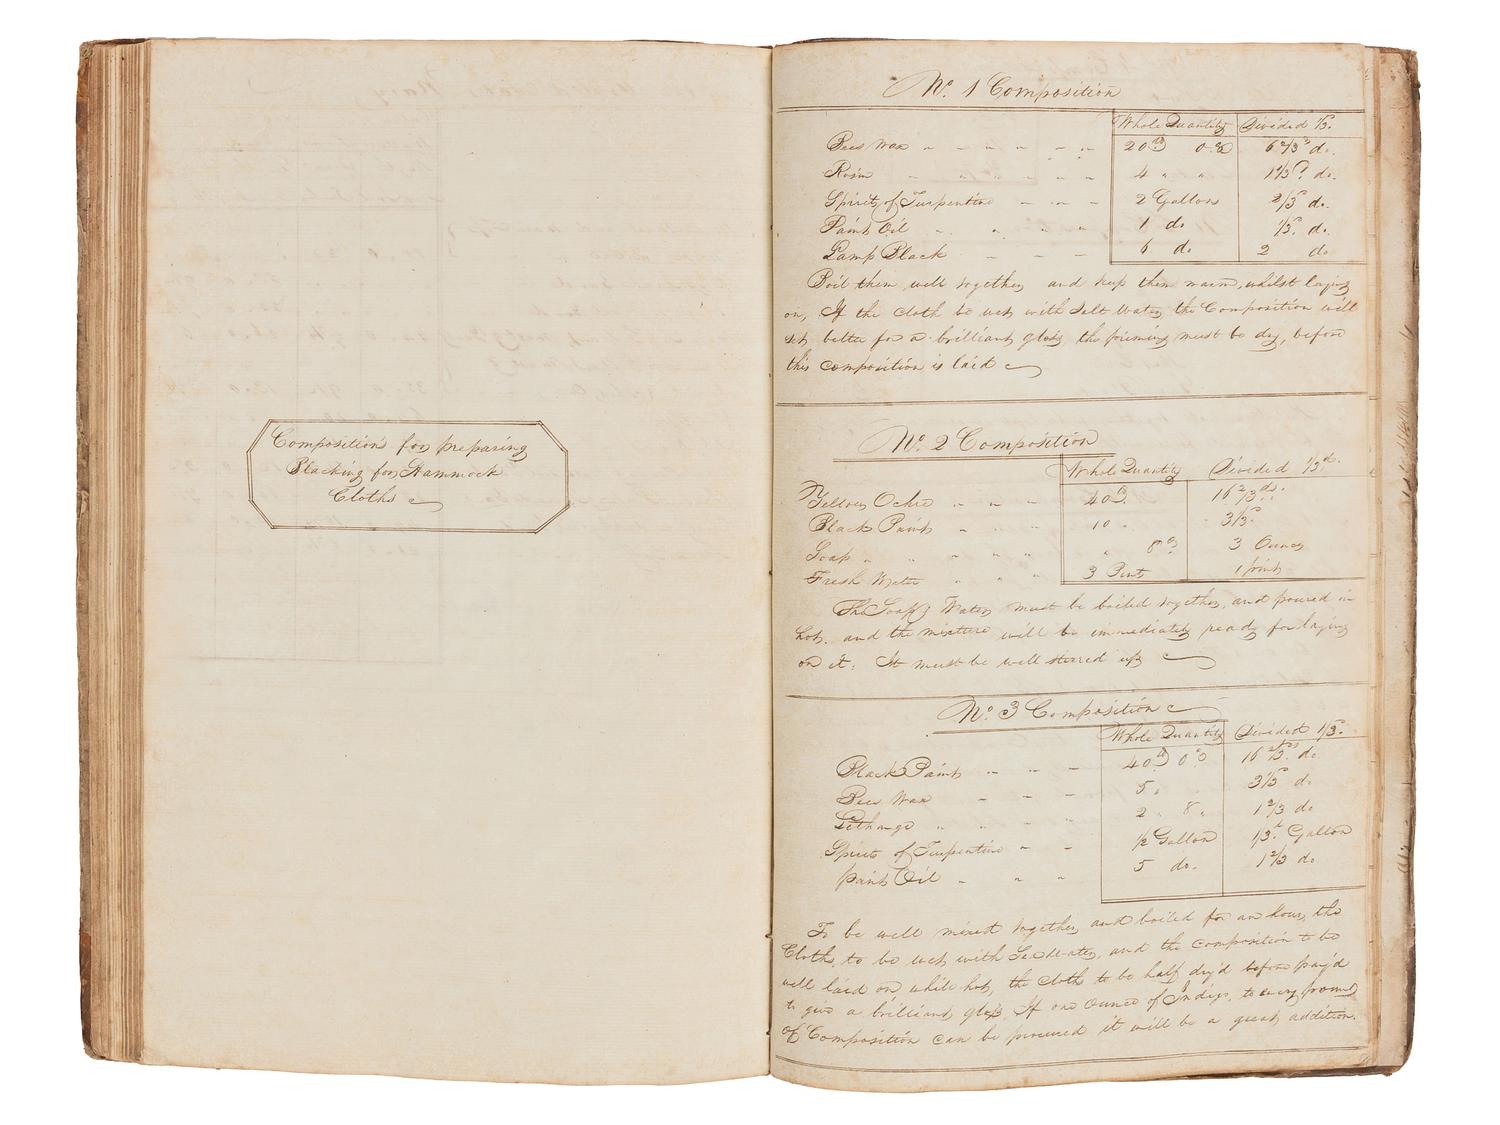 Compositions for preparing
Blacking for Hammock
Cloths
No. 1 Composition
Whole Quantity Divided 1/3d.
Bees Wax 20 lb 0 oz 6 2/3ds do.
Rosin 4 " " 1 1/3d. do.
Spirit of Turpentine 2 Gallons 2/3ds do.
Paint Oil 1 do 1/3d. do.
Lamp Black 6 do. 2 do
Boil them well together and keep them warm, whilst laying
on, If the Cloth be wet with Salt Water the Composition will
set better for a brilliant gloss the priming must be dry, before
this composition is laid
No. 2 Composition
Whole Quantity Divided 1/3d.
Yellow Ochre 40 lb. 16 2/3ds.
Black Paint 10 " 3 1/3d
Soap " 8 oz 3 Ounces
Fresh Water 3 Pint 1 pint
The Soap & Water must be boiled together, and poured in
hot, and the mixture will be immediately ready for laying
on it. It must be well stirred up
No. 3 Composition
Whole Quantity Divided 1/3d.
Black Paint 40 lb 0 oz 16 2/3ds. do.
Bees Wax 5 " 3 1/3d do
Litharge 2 " 8 " 1 2/3 do
Spirits of Turpentine 1/2 Gallon 1/3d. Gallon
paint Oil 5 do. 1 2/3 do
To be well mixed together and boiled for an hour, the
Cloth, to be wet with Sea Water, and the composition to be
well laid on while hot, the cloth to be half dry'd before pay'd
to give a brilliant gloss. If one Ounce of Indigo, to every pound
of Composition can be procured it will be a great addition.